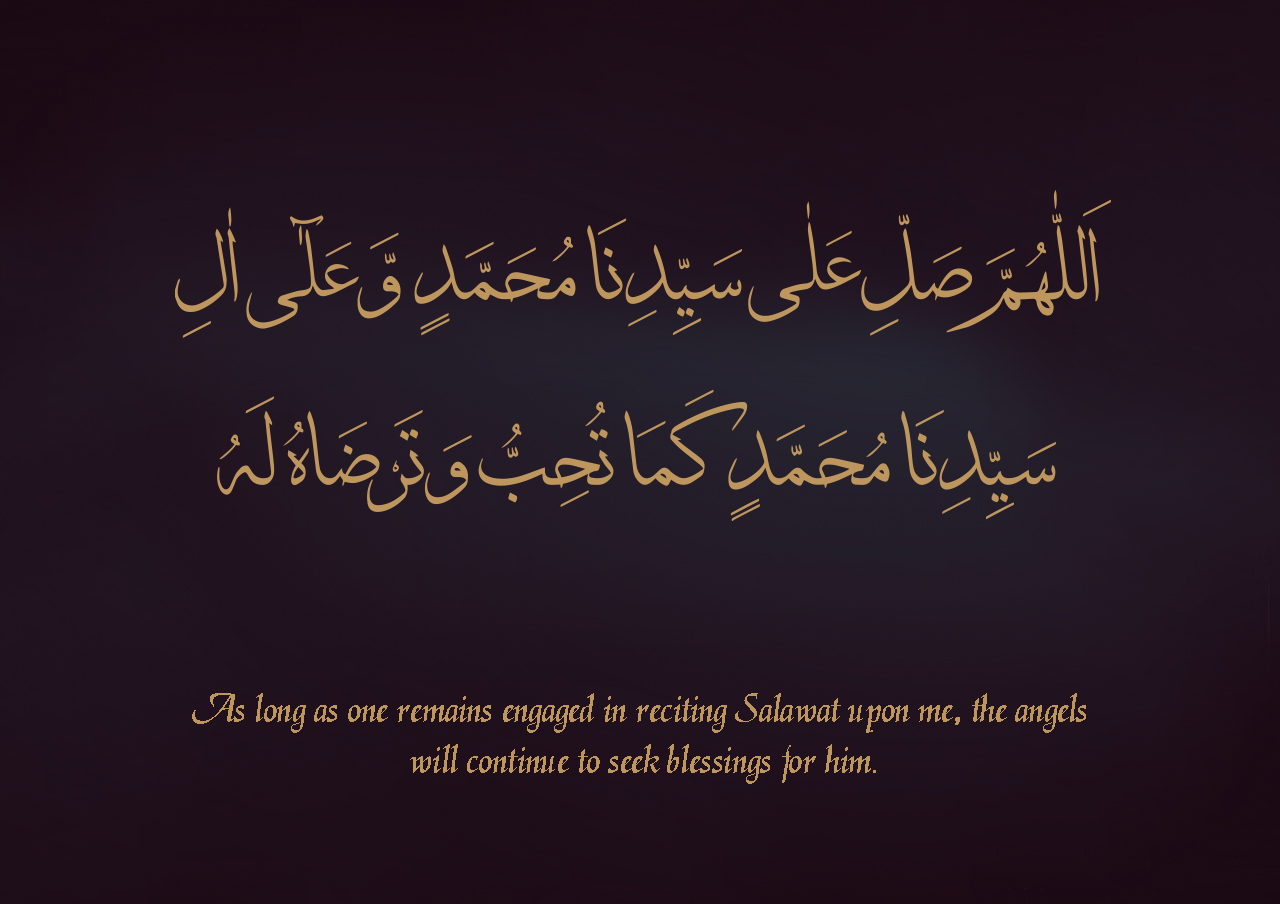 اَللّٰهُمَّ صَلِّ عَلٰى سَيِّدِنَا مُحَمَّدٍ وَّعَلٰٓى اٰلِ
سَيِّدِنَا مُحَمَّدٍ كَمَا تُحِبُّ وَتَرْضَاهُ لَهُ
As long as one remains engaged in reciting Salawat upon me, the angels
will continue to seek blessings for him.